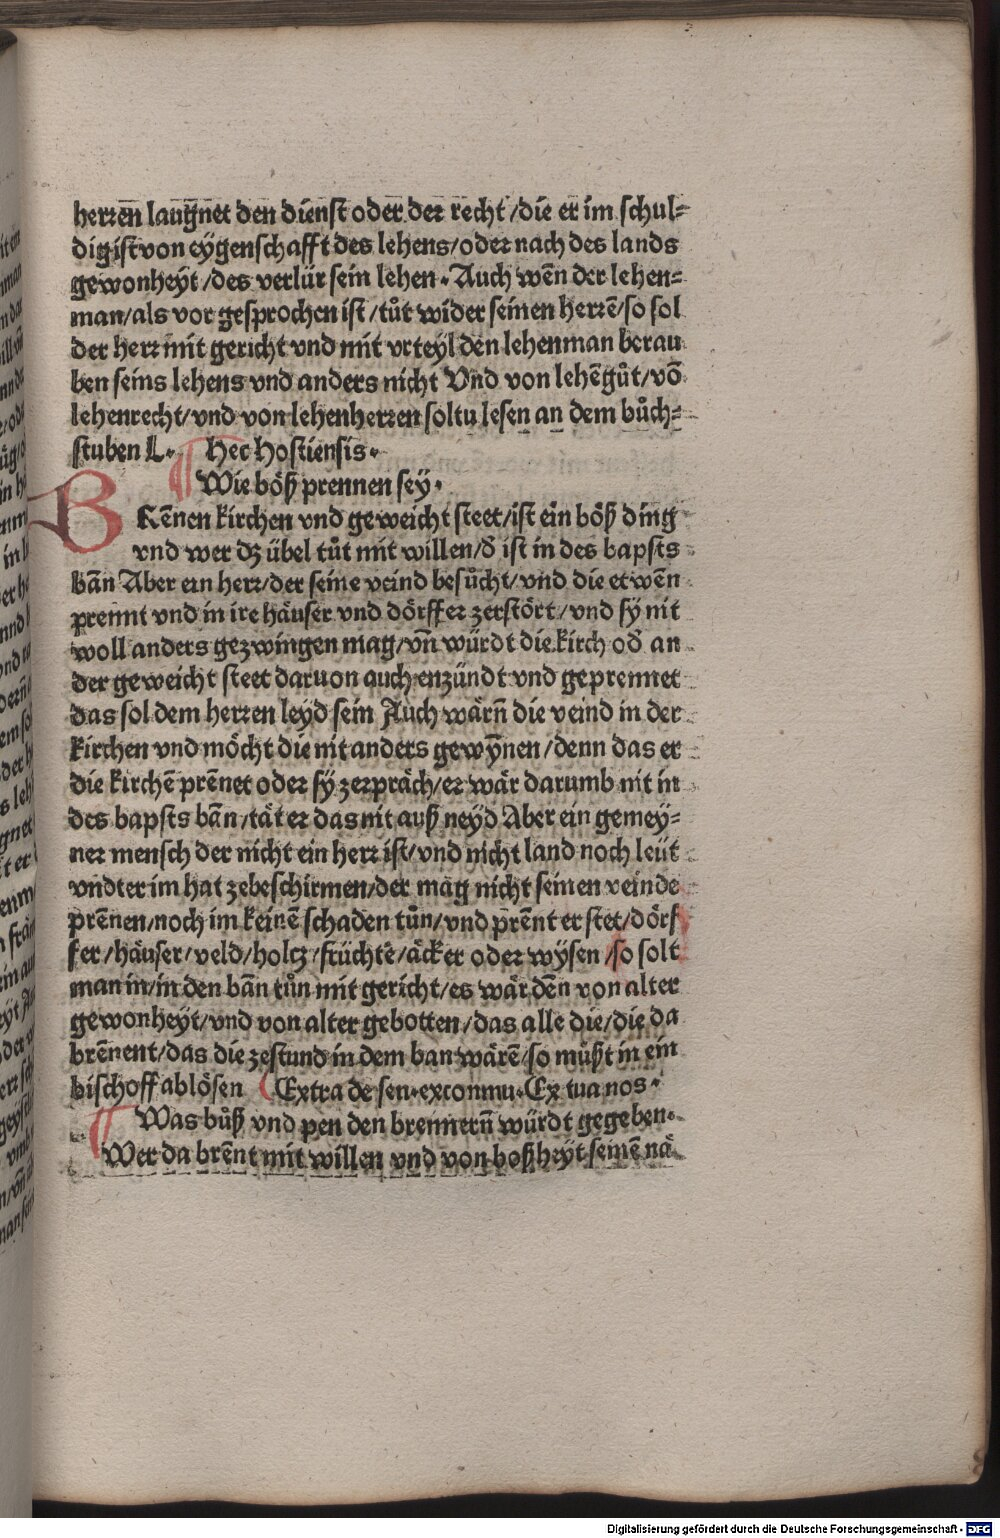 herren laugnet den dienst oder der recht/die er im schul⸗
dig ist von eygenschafft des lehens/oder nach des lands
gewonheyt/des verlür sein lehen. Auch wen̄ der lehen⸗
man/als vor gesprochen ist/tůt wider seinen herrē/so sol
der herr mit gericht vnd mit vrteyl den lehenman berau
ben seins lehens vnd anders nicht Vnd von lehēgůt/vō
lehenrecht/vnd von lehenherren soltu lesen an dem bůch⸗
stuben L. ¶ Hec Hostiensis.
¶ Wie böß prennen sey.
BRēnen kirchen vnd geweicht steet/ist ein böß ding
vnd wer dz übel tůt mit willen/d̄ ist in des bapsts
ban̄ Aber ein herr/der seine veind besůcht/vnd die etwen̄
prennt vnd in ire häuser vnd dörffer zerstört/vnd sy nit
woll anders gezwingen mag/vn̄ würdt die kirch od̄ an
der geweicht steet daruon auch enzündt vnd geprennet
das sol dem herren leyd sein Auch wärn̄ die veind in der
kirchen vnd möcht die nit anders gewȳnen/denn das er
die kirchē prēnet oder sy zerpräch/er wär darumb nit in
des bapsts ban̄/tät er das nit auß neyd Aber ein gemey⸗
ner mensch der nicht ein herr ist/vnd nicht land noch leüt
vndter im hat zebeschirmen/der mag nicht seinen veinde
prēnen/noch im keinē schaden tůn/vnd prēnt er stet/dörf
fer/häuser/veld/holtz/früchtē/äcker oder wysen/so solt
man in/in den ban̄ tůn mit gericht/es wär den̄ von alter
gewonheyt/vnd von alter gebotten/das alle die/die da
brēnent/das die zestund in dem ban wärē/so můßt in ein
bischoff ablösen ( Extra de sen.exconmu.Ex tua nos.
¶ Was bůß vnd pen den brennern̄ würdt gegeben.
Wer da brēnt mit willen vnd von boßheyt seinē nä
Digitalisierung gefördert durch die Deutsche Forschungsgemeinschaft - DFG